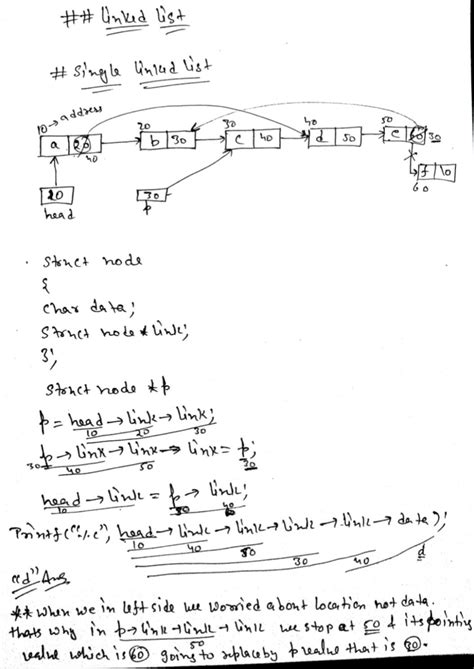 ## Linked List
# Single Linked List
10→address
20 30 40 50
a 20 b 30 c 40 d 50 e 60 30
40
f \0
60
20 30
head p
Struct node
{
Char data;
Struct node *link;
};
Struct node *p
p = head → link → link;
10 20 30
p → link → link → link = p;
30 40 50 30
head → link = p → link;
10 30 40
Printf("%c", head → link → link → link → link → data);
10 40 50 30 40 d
"d" Ans
** When we in left side we worried about location not data.
thats why in p → link → link → link we stop at 50 & its pointing
50
value which is 60 going to replace by p value that is 30.